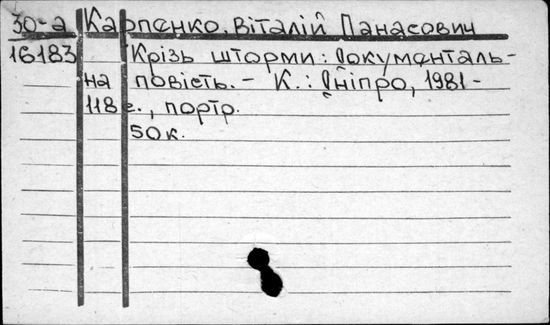 30-а Карпенко, Віталій Панасович
16183 Крізь шторми: Документаль-
на повість. - К.: Дніпро, 1981-
118с., портр.
50к.